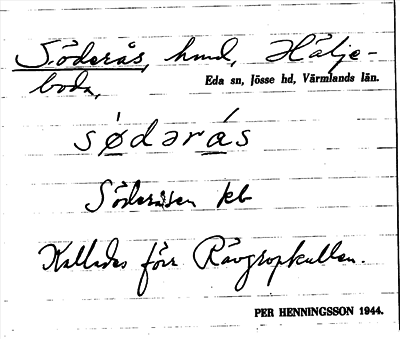 Söderås, hmd, Hälje-
Eda sn, Jösse hd, Värmlands län.
boda,
sǿdərás
Söderåsen kb
Kallades förr Rävgropkullen.
PER HENNINGSSON 1944.